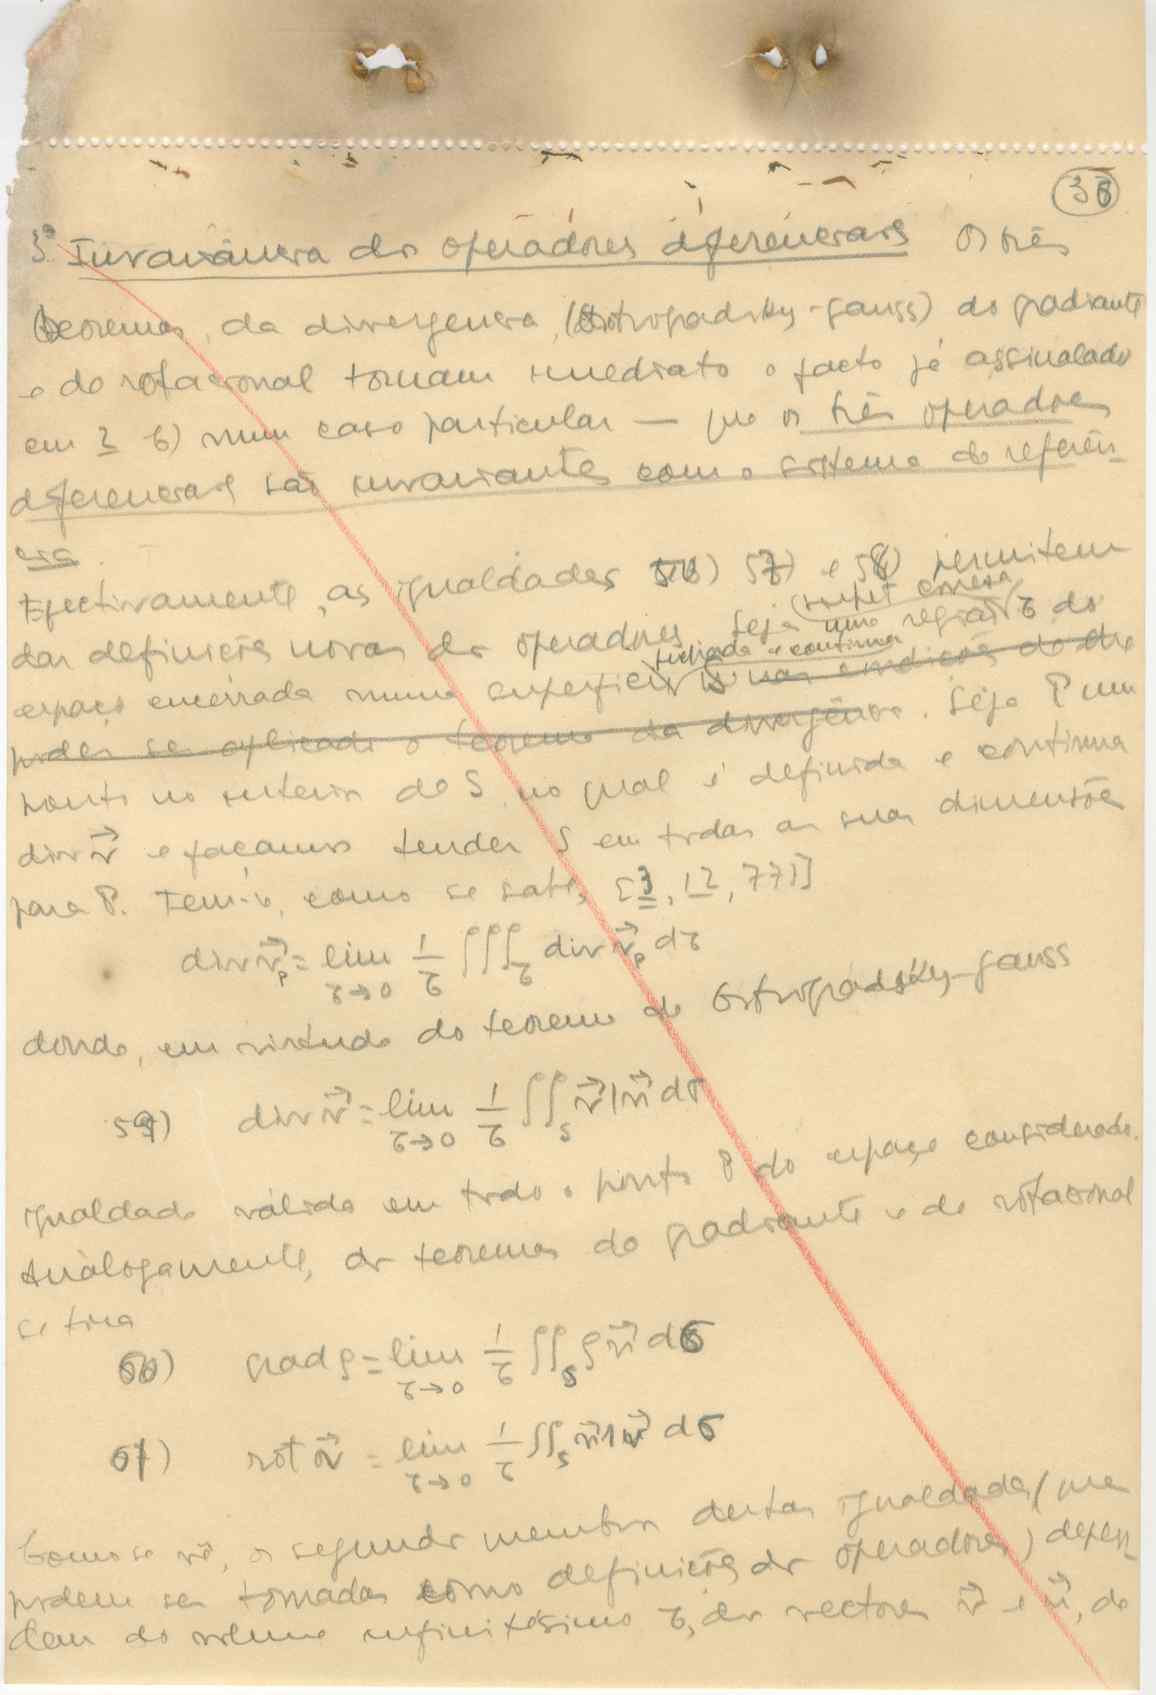 38
3º Invariância dos operadores diferenciais Os três
teoremas, da divergência, (Ostrogradsky-Gauss) do gradiante
e do rotacional tornam imediato o facto já assinalado
em 3 6) num caso particular — que os três operadores
diferenciais são invariantes com o sistema de referên-
cia.
Efectivamente, as igualdades 56) 57) e 58) permitem
dar definições novas dos operadores. Seja uma região (conexa) τ do
espaço encerrada numa superfície fechada e contínua S nas condições de lhe
poder ser aplicado o teorema da divergência. Seja P um
ponto no interior de S no qual é definida e contínua
div v⃗ e façamos tender S em todas as suas dimensões
para P. Tem-se, como se sabe, [3, 12, 771]
div v⃗_P = lim_{τ→0} 1/τ ∭_τ div v⃗_P dτ
donde, em virtude do teorema de Ostrogradsky-Gauss
59) div v⃗ = lim_{τ→0} 1/τ ∬_S v⃗|n⃗ dσ
igualdade válida em todo o ponto P do espaço considerado.
Anàlogamente, dos teoremas do gradiante e do rotacional
se tira
60) grad ρ = lim_{τ→0} 1/τ ∬_S ρ n⃗ dσ
61) rot v⃗ = lim_{τ→0} 1/τ ∬_S n⃗∧v⃗ dσ
Como se vê, os segundos membros destas igualdades (que
podem ser tomadas como definições dos operadores) depen-
dem do volume infinitésimo τ, dos vectores v⃗ e n⃗, de